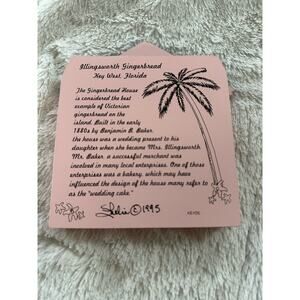 Illingsworth Gingerbread
Key West, Florida
The Gingerbread House
is considered the best
example of Victorian
gingerbread on the
island. Built in the early
1880s by Benjamin B. Baker,
the house was a wedding present to his
daughter when she became Mrs. Illingsworth
Mr. Baker, a successful merchant was
involved in many local enterprises. One of those
enterprises was a bakery, which may have
influenced the design of the house many refer to
as the "wedding cake."
Sheila ©1995